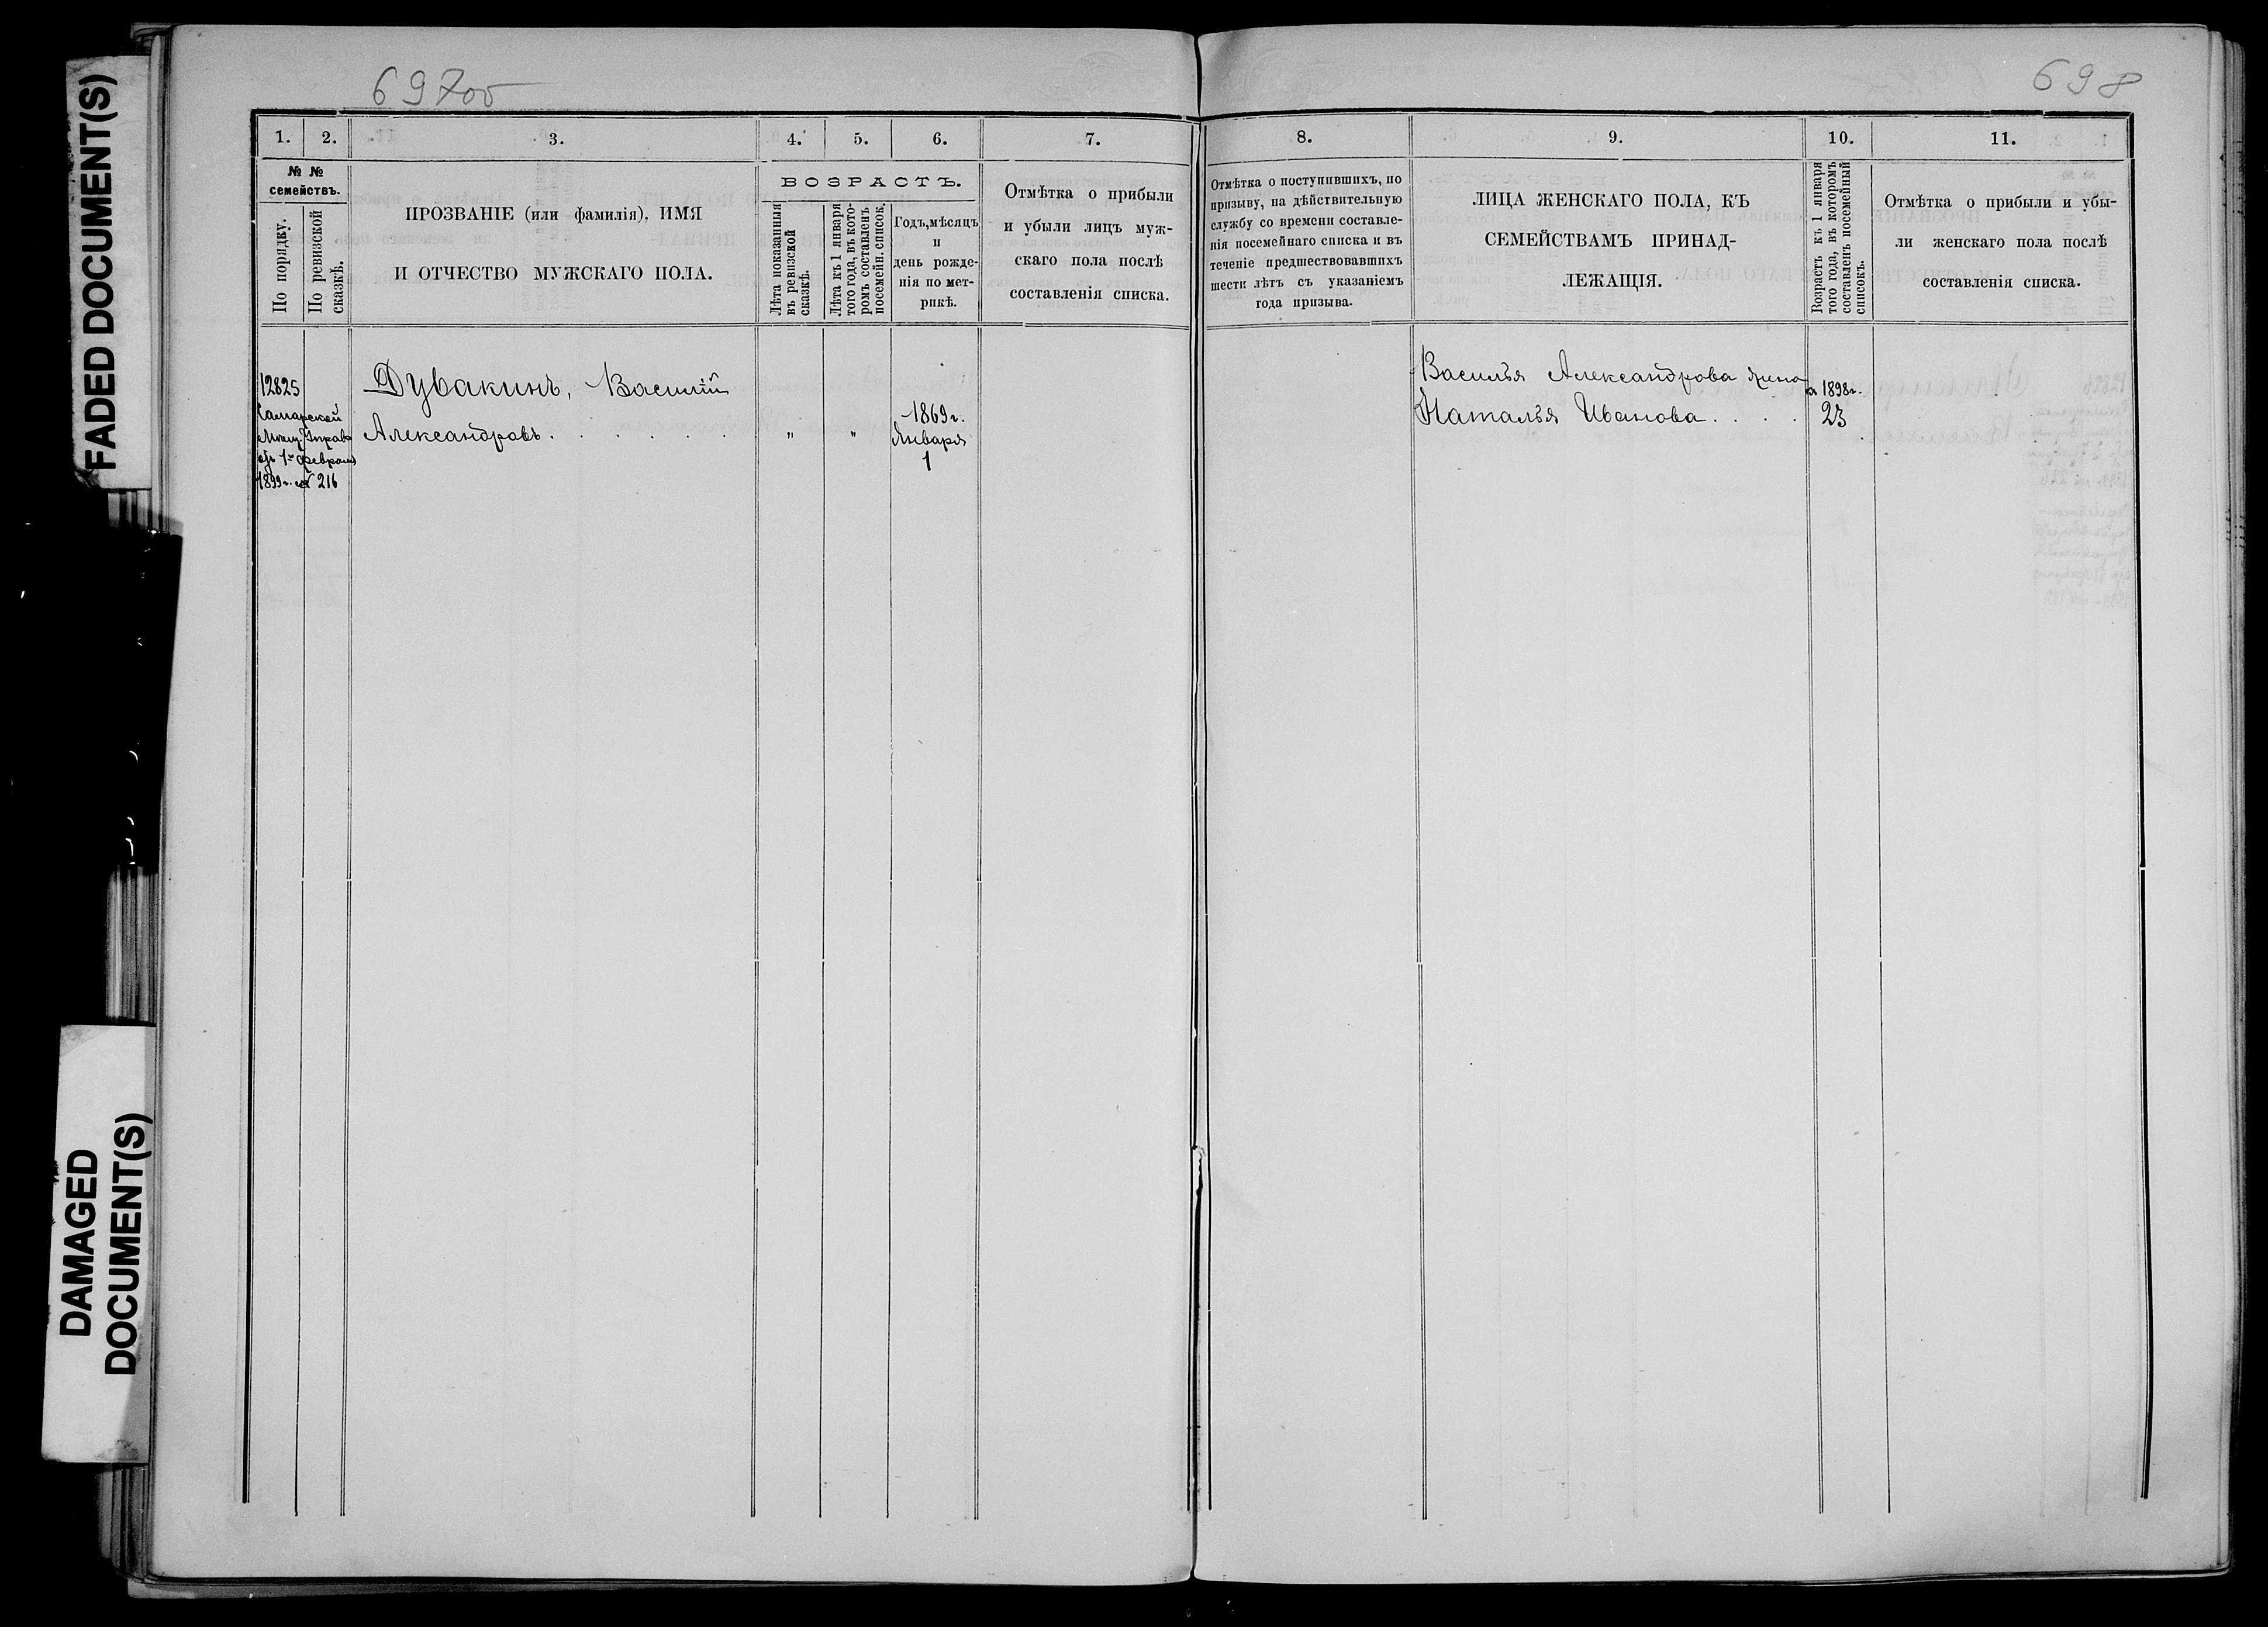 FADED DOCUMENT(S)
DAMAGED
DOCUMENT(S)
697об
698
1. 2. 3. 4. 5. 6. 7.
№ №
семействъ.
По порядку.
По ревизской
сказкѣ.
ПРОЗВАНІЕ (или фамилія), ИМЯ
И ОТЧЕСТВО МУЖСКАГО ПОЛА.
ВОЗРАСТЪ.
Лѣта показанныя
въ ревизской
сказкѣ.
Лѣта къ 1 января
того года, въ кото-
ромъ составленъ
посемейн. список.
Годъ, мѣсяцъ
и
день рожде-
нія по мет-
рикѣ.
Отмѣтка о прибыли
и убыли лицъ муж-
скаго пола послѣ
составленія списка.
12825
Самарской
Мѣщ. Управы
отъ 1го февраля
1899 г. № 216
Дувакинъ, Василій
Александровъ. . . . . . .
" "
1869 г.
Января
1
8. 9. 10. 11.
Отмѣтка о поступившихъ, по
призыву, на дѣйствительную
службу со времени составле-
нія посемейнаго списка и въ
теченіе предшествовавшихъ
шести лѣтъ съ указаніемъ
года призыва.
ЛИЦА ЖЕНСКАГО ПОЛА, КЪ
СЕМЕЙСТВАМЪ ПРИНАД-
ЛЕЖАЩІЯ.
Возрастъ къ 1 января
того года, въ которомъ
составленъ посемейный
списокъ.
Отмѣтка о прибыли и убы-
ли женскаго пола послѣ
составленія списка.
Василья Александрова жена
Наталья Иванова. . . .
1898 г.
23